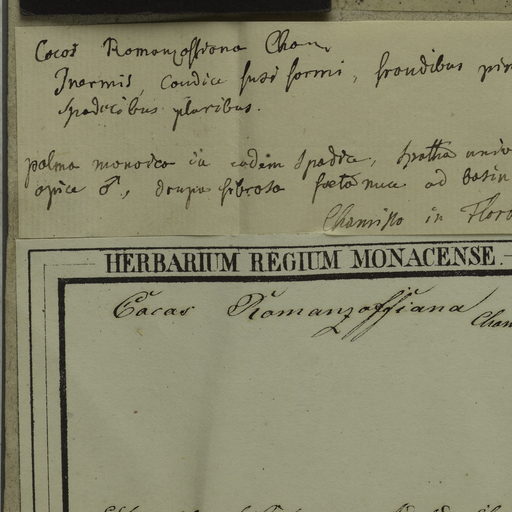 Cocos Romanzoffiana Cham.
Inermis, caudice fusiformi, frondibus pin
spadicibus pluribus.
palma monoica in eodem spadice, spatha univ
apice ♂, drupa fibrosa foeta nuce ad basin
Chamisso in Flora
HERBARIUM REGIUM MONACENSE.
Cocos Romanzoffiana
Cham